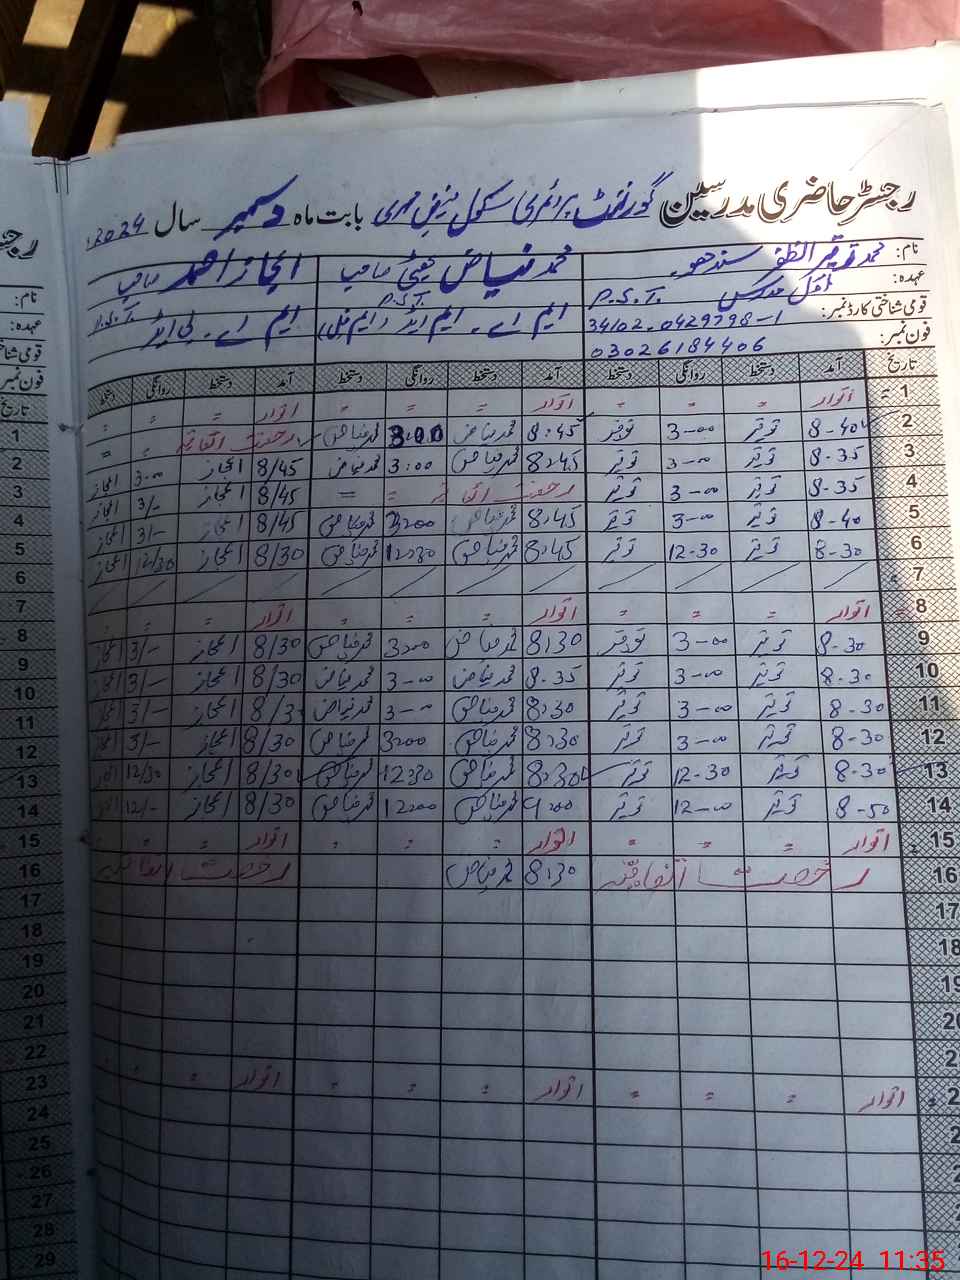 رجسٹر حاضری مدرسین گورنمنٹ پرائمری سکول بابت ماہ دسمبر سال 2024
نام: محمد توقیر الظفر سندھو محمد فیاض بھٹی صاحب اعجاز احمد صاحب
عہدہ: اول مدرس P.S.T. P.S.T.
قومی شناختی کارڈ نمبر: 34102-0429798-1 ایم اے - ایم ایڈ (ایم فل) ایم اے - بی ایڈ
فون نمبر: 03026184406
تاریخ آمد دستخط روانگی دستخط آمد دستخط روانگی دستخط آمد دستخط روانگی دستخط
1 اتوار = = = اتوار = = = اتوار = = =
2 8-40 توقیر 3-00 توقیر 8:45 محمد فیاض 3:00 محمد فیاض رخصت اتفاقیہ = =
3 8-35 توقیر 3-00 توقیر 8:45 محمد فیاض 3:00 محمد فیاض 8/45 اعجاز 3-00 اعجاز
4 8-35 توقیر 3-00 توقیر رخصت اتفاقیہ = = 8/45 اعجاز 3/- اعجاز
5 8-40 توقیر 3-00 توقیر 8:45 محمد فیاض 3:00 محمد فیاض 8/45 اعجاز 3/- اعجاز
6 8-30 توقیر 12-30 توقیر 8:45 محمد فیاض 12:30 محمد فیاض 8/30 اعجاز 12/30 اعجاز
7
8 اتوار = = = اتوار = = = اتوار = = =
9 8-30 توقیر 3-00 توقیر 8:30 محمد فیاض 3:00 محمد فیاض 8/30 اعجاز 3/- اعجاز
10 8-30 توقیر 3-00 توقیر 8-35 محمد فیاض 3-00 محمد فیاض 8/30 اعجاز 3/- اعجاز
11 8-30 توقیر 3-00 توقیر 8:30 محمد فیاض 3-00 محمد فیاض 8/30 اعجاز 3/- اعجاز
12 8-30 توقیر 3-00 توقیر 8:30 محمد فیاض 3:00 محمد فیاض 8/30 اعجاز 3/- اعجاز
13 8-30 توقیر 12-30 توقیر 8:30 محمد فیاض 12:30 محمد فیاض 8/30 اعجاز 12/30
14 8-50 توقیر 12-00 توقیر 9:00 محمد فیاض 12:00 محمد فیاض 8/30 اعجاز 12/-
15 اتوار = = = اتوار = = = اتوار = = =
16 رخصت اتفاقیہ 8:30 محمد فیاض رخصت اتفاقیہ
17
18
19
20
21
22
اتوار = = = اتوار = = = اتوار = =
نام:
عہدہ:
فون نمبر
تاریخ
1
2
3
4
5
6
7
8
9
10
11
12
13
14
15
16
17
18
19
20
21
22
23
24
25
26
27
28
29
16-12-24 11:35